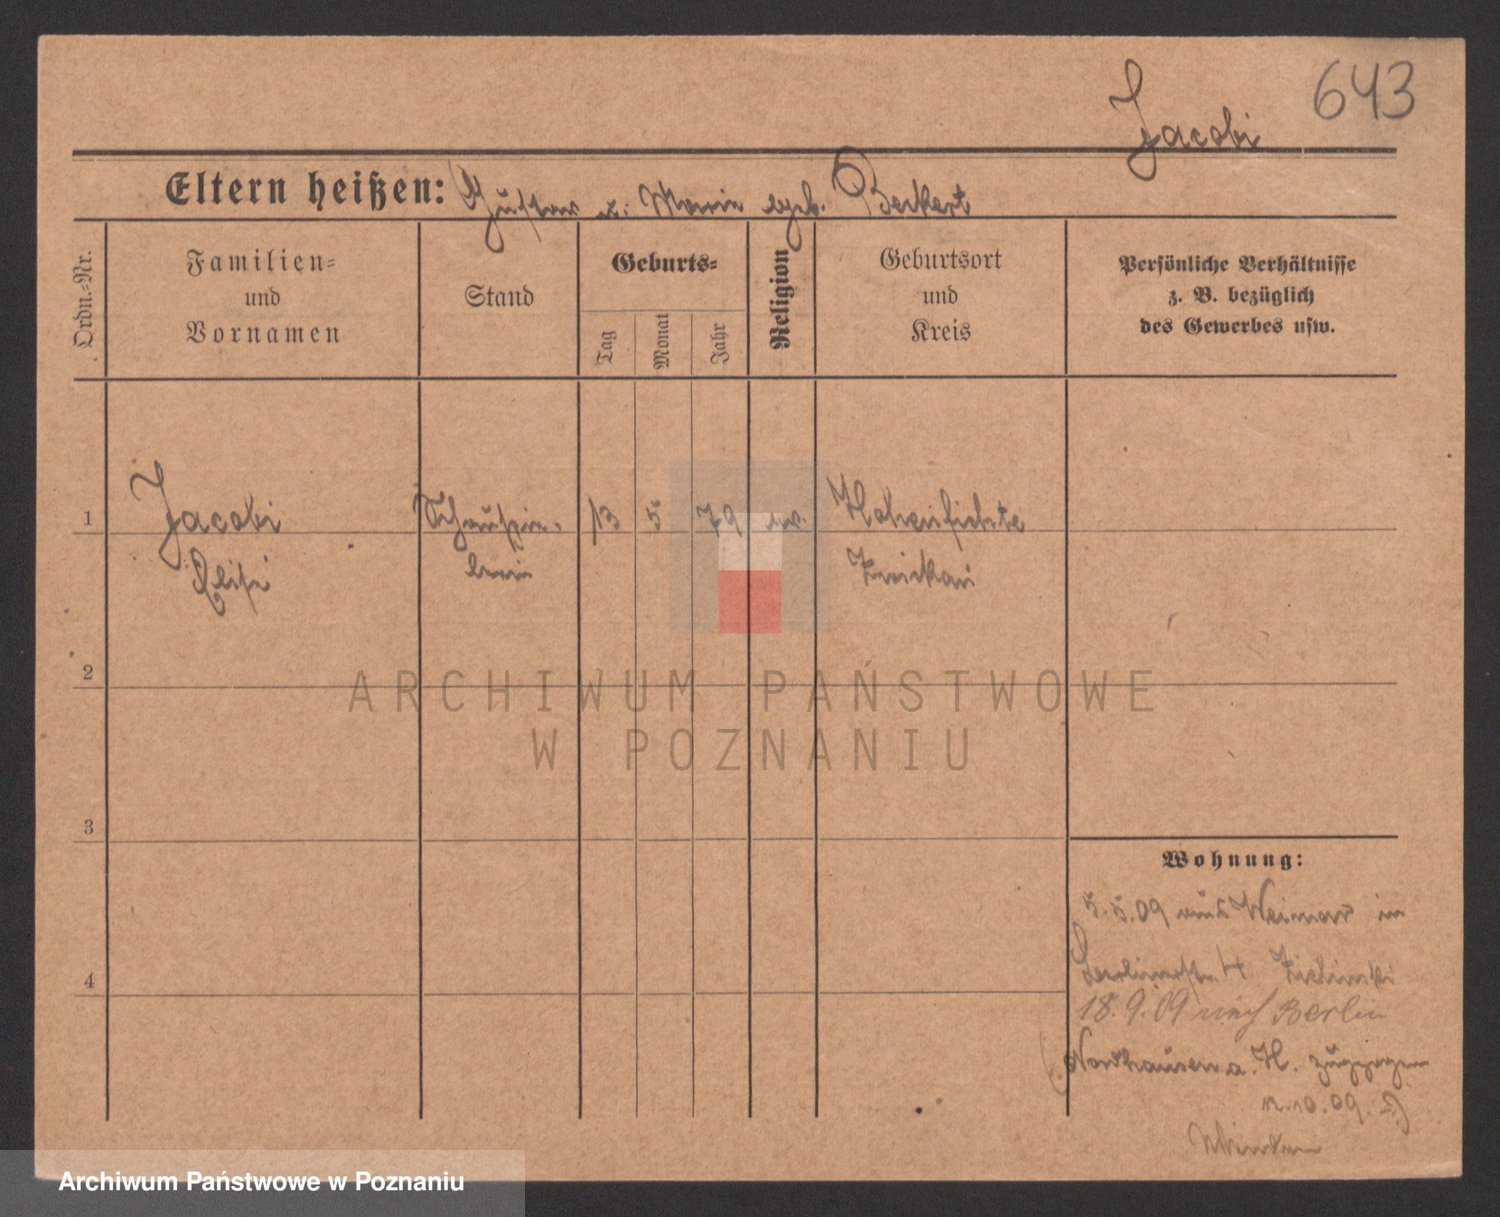 Jacobi 643
Eltern heißen: Gustav u. Marie geb. Beckert
Ordn.-Nr.
Familien-
und
Vornamen
Stand
Geburts-
Tag
Monat
Jahr
Religion
Geburtsort
und
Kreis
Persönliche Verhältnisse
z. B. bezüglich
des Gewerbes usw.
1 Jacobi Schauspie- 13 5 79 ev. Hohenfichte
Elise lerin Zwickau
2
ARCHIWUM PAŃSTWOWE
W POZNANIU
3
Wohnung:
5.5.09 aus Weimar in
Berlinerstr. 4 Zielinski
4
18.9.09 nach Berlin
Nordhausen a. H. zugezogen
10.09.
Archiwum Państwowe w Poznaniu